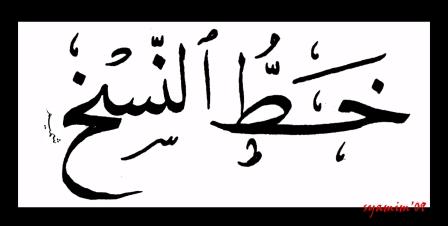 خَطُّ النَّسْخِ
syamim'09